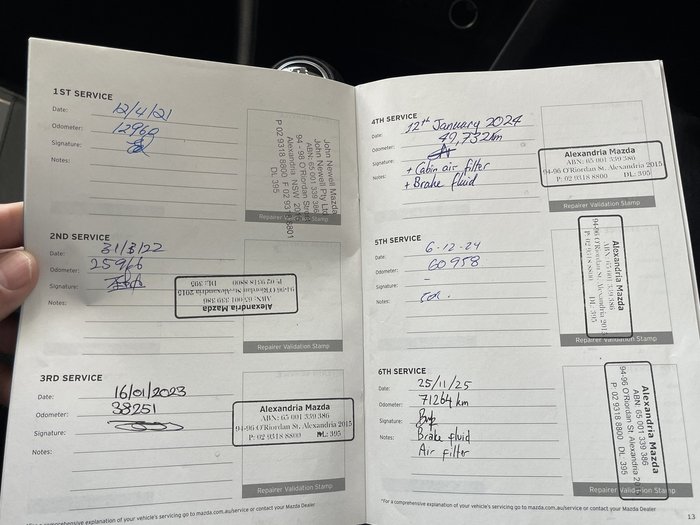 1ST SERVICE
Date: 12/4/21
Odometer: 12960
Signature:
Notes:
John Newell Mazda
John Newell Pty Ltd
ABN: 65 001 339 386
94 - 96 O'Riordan St
Alexandria NSW
P 02 9318 8800 F 02 93
DL 395
Repairer Validation Stamp
2ND SERVICE
Date: 31/3/22
Odometer: 25966
Signature:
Notes:
Alexandria Mazda
ABN: 65 001 339 386
94-96 O'Riordan St. Alexandria 2015
P: 02 9318 8800 DL: 395
Repairer Validation Stamp
3RD SERVICE
Date: 16/01/2023
Odometer: 38251
Signature:
Notes:
Alexandria Mazda
ABN: 65 001 339 386
94-96 O'Riordan St. Alexandria 2015
P: 02 9318 8800 DL: 395
Repairer Validation Stamp
*For a comprehensive explanation of your vehicle's servicing go to mazda.com.au/service or contact your Mazda Dealer
4TH SERVICE
Date: 12th January 2024
Odometer: 49,732km
Signature:
Notes: + Cabin air filter
+ Brake fluid
Alexandria Mazda
ABN: 65 001 339 386
94-96 O'Riordan St. Alexandria 2015
P: 02 9318 8800 DL: 395
Repairer Validation Stamp
5TH SERVICE
Date: 6-12-24
Odometer: 60958
Signature:
Notes:
Alexandria Mazda
ABN: 65 001 339 386
94-96 O'Riordan St. Alexandria 2015
P: 02 9318 8800 DL: 395
Repairer Validation Stamp
6TH SERVICE
Date: 25/11/25
Odometer: 71264km
Signature:
Notes: Brake fluid
Air filter
Alexandria Mazda
ABN: 65 001 339 386
94-96 O'Riordan St. Alexandria
P: 02 9318 8800 DL: 395
Repairer Validation Stamp
*For a comprehensive explanation of your vehicle's servicing go to mazda.com.au/service or contact your Mazda Dealer
13